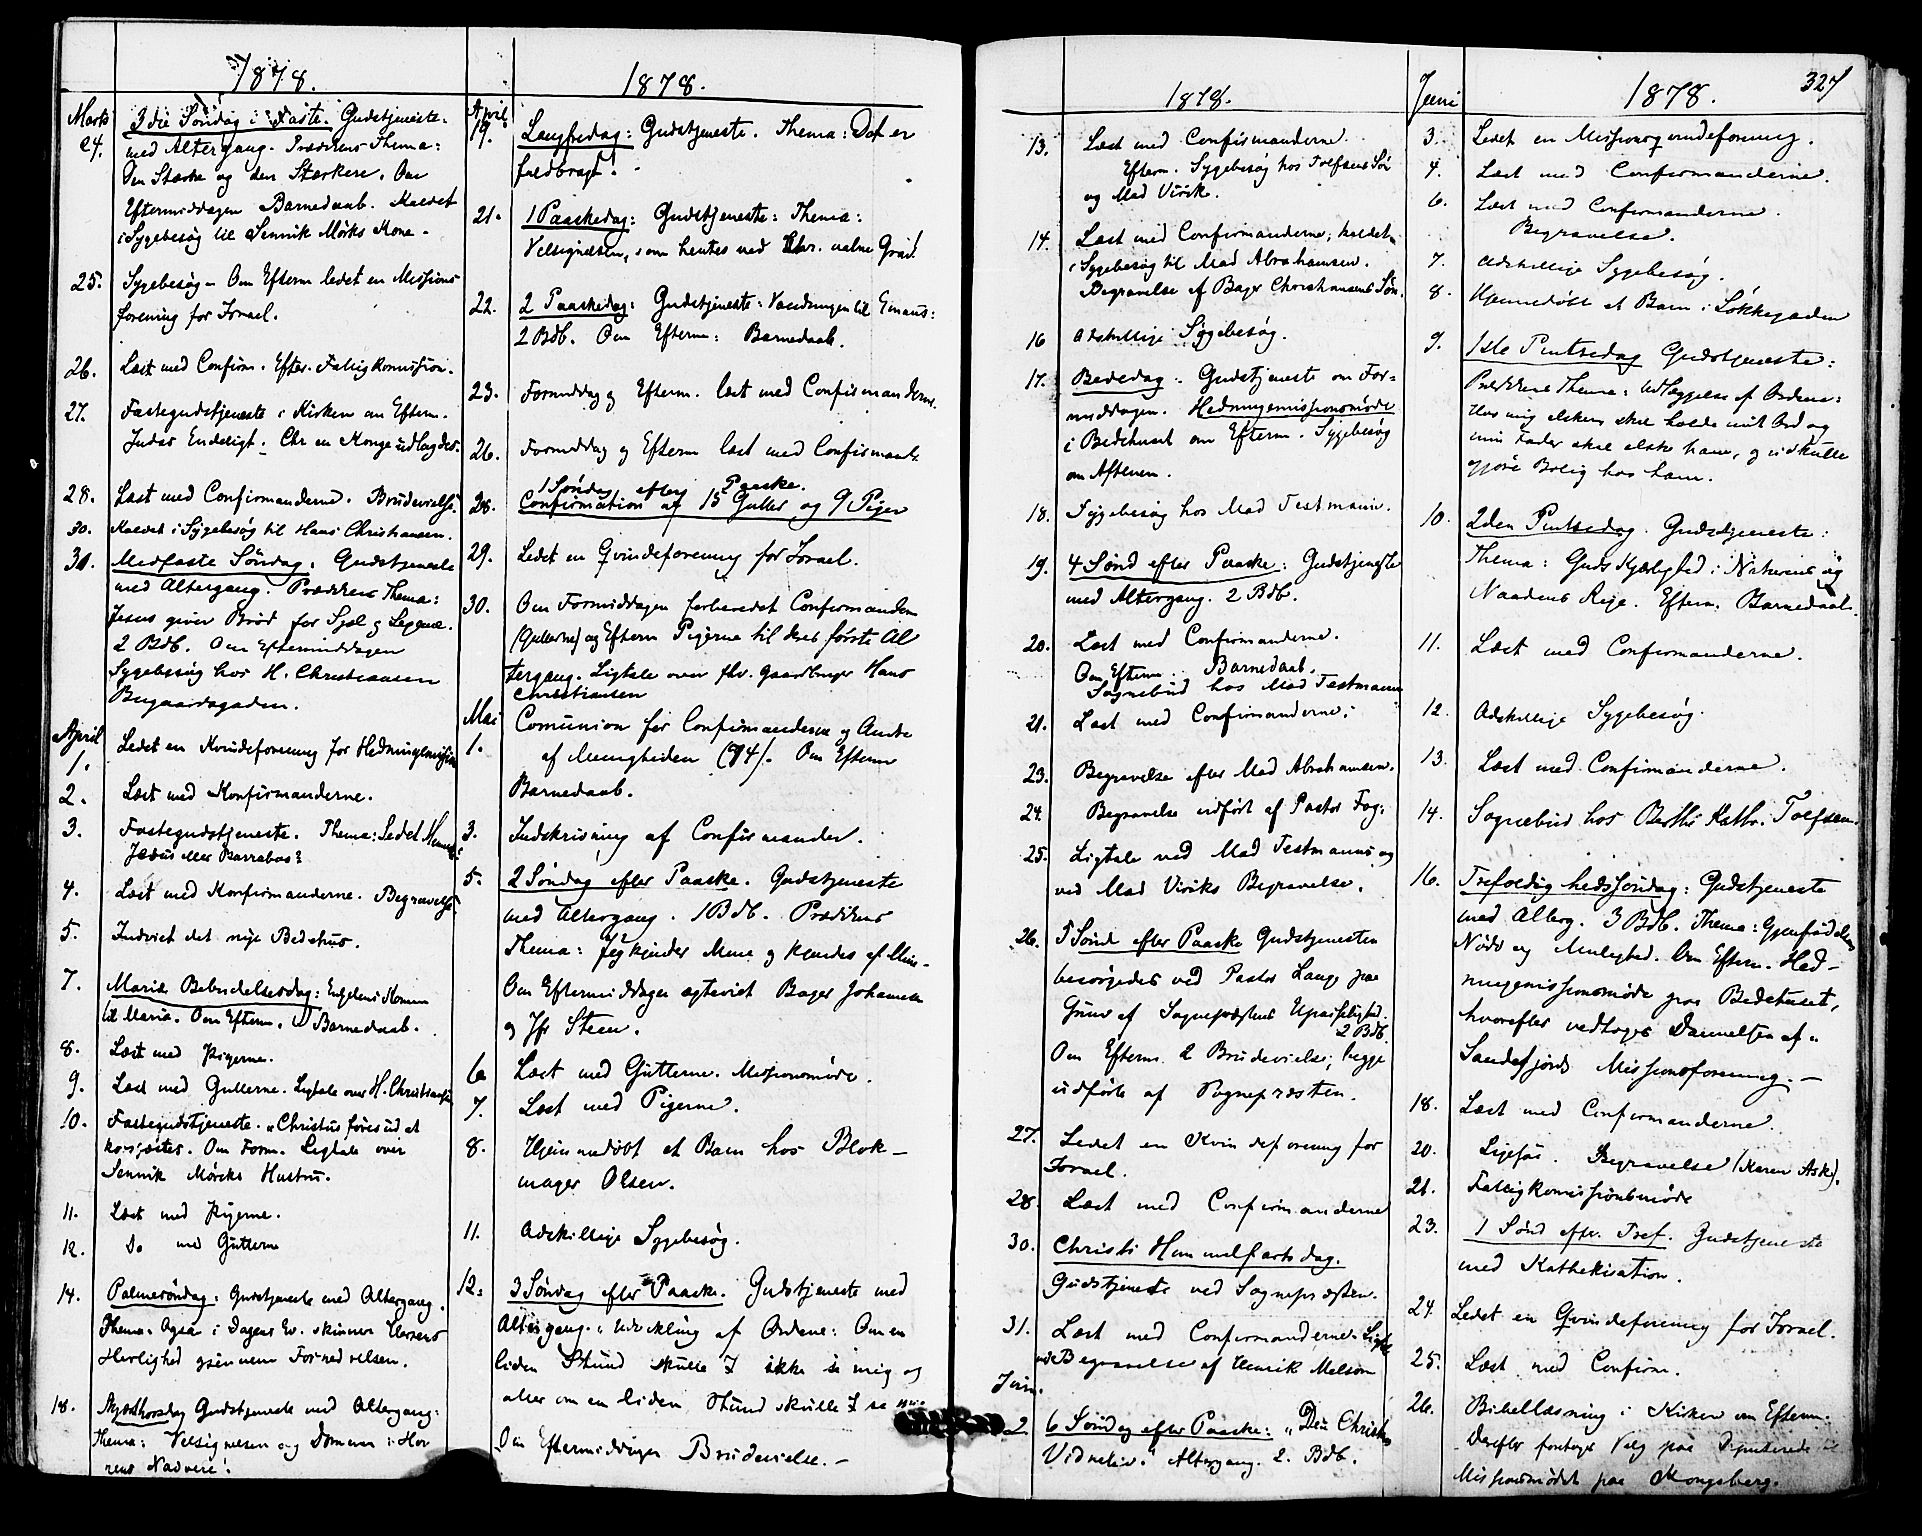 1878.
Marts
24. 3die Søndag i Faste. Gudstjeneste
med Altergang. Prædikens Thema:
Den Stærke og den Stærkere. Om
Eftermiddagen Barnedaab. Kaldet
i Sygebesøg til Sennik Mørks Kone.
25. Sygebesøg - Om Efterm ledet en Missions
forening for Israel.
26. Læst med Confirm. Efter. Fattigkomission.
27. Fastegudstjeneste i Kirken om Efterm.
Judas Endeligt. Chr en Konge
28. Læst med Confirmanderne. Brudevielse.
30. Kaldet i Sygebesøg til Hans Christiansen.
31. Midfaste Søndag. Gudstjeneste
med Altergang. Prædikens Thema:
Jesus giver Brød for Sjæl og Legeme.
2 Bdb. Om Eftermiddagen
Sygebesøg hos H. Christiansen
Bugaardsgaden.
April
1. Ledet en Kvindeforening for Hedningemission
2. Læst med Konfirmanderne.
3. Fastegudstjeneste. Thema:
Jesus eller Barrabas?
4. Læst med Konfirmanderne. Begravelse.
5. Indviet det nye Bedehus.
7. Mariæ Bebudelsesdag: Engelens Komme
til Maria. Om Efterm. Barnedaab.
8. Læst med Pigerne.
9. Læst med Gutterne. Ligtale over H. Christiansen
10. Fastegudstjeneste. "Christus føres ud at
korsfæstes. Om Form. Ligtale over
Sennik Mørks Hustru.
11. Læst med Pigerne.
12. Do med Gutterne
14. Palmesøndag: Gudstjeneste med Altergang.
Thema: Ogsaa i Dagens Ev. skinner Herrens
Herlighed gjennem Fornedrelsen.
18. Skjærthorsdag Gudstjeneste med Altergang:
Thema: Velsignelsen og Dommen i Her
rens Nadvere!
1878.
April
19. Langfredag: Gudstjeneste. Thema: Det er
fuldbragt!
21. 1 Paaskedag: Gudstjeneste: Thema:
Velsignelsen, som hentes ved Chr. Grav.
22. 2 Paaskedag: Gudstjeneste: Vandringen til Emaus:
2 Bdb. Om Efterm: Barnedaab.
23. Formiddag og Efterm. læst med Confirmanderne.
26. Formiddag og Efterm læst med Confirmand.
1 Søndag efter Paaske.
28. Confirmation af 15 Gutter og 9 Piger
29. Ledet en Qvindeforening for Israel.
30. Om Formiddagen forberedet Confirmandern
(Gutterne) og Efterm Pigerne til deres første Al
tergang. Ligtale over fhv. Gaardbruger Hans
Christiansen
Mai
1. Comunion for Confirmanderne og Andre
af Menigheden (74). Om Efterm
Barnedaab.
3. Indskrivning af Confirmander.
5. 2 Søndag efter Paaske. Gudstjeneste
med Altergang. 1 Bdb. Prædikens
Thema: Jeg kjender Mine og kjendes af Mine.
Om Eftermiddagen ægteviet Bager Johansen
og Jfr Steen.
6 Læst med Gutterne. Missionsmøde.
7. Læst med Pigerne.
8. Hjemmedøbt et Barn hos Blok-
mager Olsen.
11. Adskillige Sygebesøg.
12. 3 Søndag efter Paaske. Gudstjeneste med
Altergang. Udvikling af Ordene: Om en
liden Stund skulle I ikke se mig og
atter om en liden Stund skulle I se mig.
Om Eftermiddagen Brudevielse.-
1878.
13. Læst med Confirmanderne.
Efterm. Sygebesøg hos Tolfsens Søn
og Mad Virik.
14. Læst med Confirmanderne; kaldet
i Sygebesøg til Mad Abrahamsen.
Begravelse af Bager Christiansens Søn.
16 Adskillige Sygebesøg.
17. Bededag. Gudstjeneste om For-
middagen. Hedningemissionsmøde
i Bedehuset om Efterm. Sygebesøg
om Aftenen.
18. Sygebesøg hos Mad Testmann.
19. 4 Sønd efter Paaske: Gudstjeneste
med Altergang. 2 Bdb.
20. Læst med Confirmanderne.
Om Efterm: Barnedaab.
Sognebud hos Mad Testmann
21. Læst med Confirmanderne.
23. Begravelse efter Mad Abrahamsen.
24. Begravelse udført af Pastor
25. Ligtale ved Mad Testmanns og
ved Mad Viriks Begravelse.
26. 5 Sønd efter Paaske Gudstjenesten
besørgedes ved Pastor Lange paa
Grund af Sognepræstens Upasselighed.
2 Bdb.
Om Efterm. 2 Brudevielse; begge
udførte af Sognepræsten.
27. Ledet en Kvindeforening for
Israel.
28. Læst med Confirmanderne
30. Christi Himmelfartsdag.
Gudstjeneste ved Sognepræsten.
31. Læst med Confirmanderne. Ligtale
ved Begravelse af Henrik Melsom
Juni.
2 6 Søndag efter Paaske: "Den Christnes
Vidneliv." Altergang. 2. Bdb.
327
Juni
1878.
3. Ledet en Missionsqvindeforening.
4. Læst med Confirmanderne.
6. Læst med Confirmanderne.
Begravelse.
7. Adskillige Sygebesøg.
8. Hjemmedøbt et Barn i Løkkegaden
9. 1ste Pintsedag Gudstjeneste:
Prædikens Thema: Udlæggelse af Ordene:
Hvo mig elsker skal holde mit Ord og
min Fader skal elske ham, og vi skulle
gjøre Bolig hos ham.
10. 2den Pintsedag. Gudstjeneste:
Thema: Guds Kjærlighed i Naturens og
Naadens Rige. Efterm. Barnedaab.
11. Læst med Confirmanderne.
12. Adskillige Sygebesøg.
13. Læst med Confirmanderne.
14. Sognebud hos Berthe Kathr. Tolfsen.
16. Trefoldighedssøndag: Gudstjeneste
med Alterg. 3 Bdb. Thema: Gjenfødelsens
Nødv og Mulighed. Om Efterm. Hed-
ningemissionsmøde paa Bedehuset,
hvorefter vedtoges Dannelsen af
Sandefjords Missionsforening.-
18. Læst med Confirmanderne.
20. Ligesaa. Begravelse (Karen Ask).
21. Fattigkomissionsmøde
23. 1 Sønd eftr. Tref. Gudstjeneste
med Kathekisation.
24. Ledet en Qvindeforening for Israel.
25. Læst med Confirm.
26. Bibellæsning i Kirken om Efterm.
Derefter foretoges Valg paa Deputerede til
Missionsmødet paa Kongsberg.